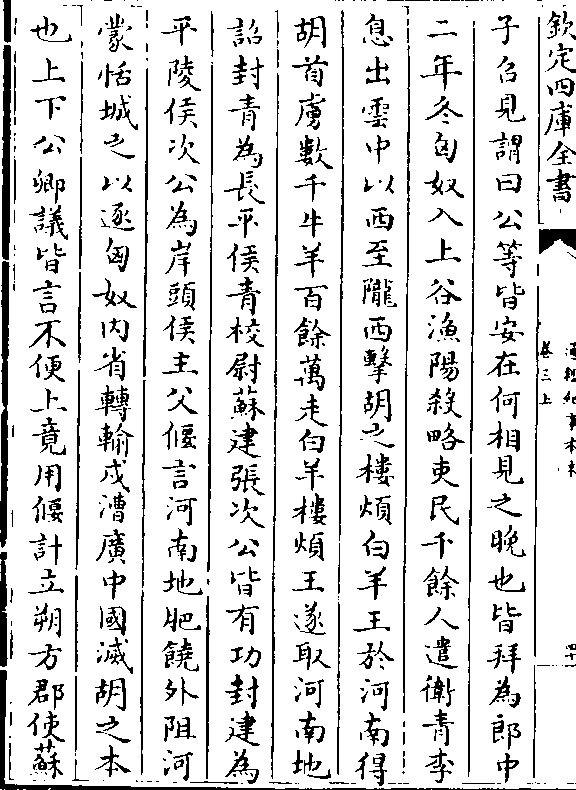 欽定四庫全書
卷三上
子召見謂曰公等皆安在何相見之晚也皆拜為郎中
二年冬匈奴入上谷漁陽殺略吏民千餘人遣衛青李
息出雲中以西至隴西擊胡之樓煩白羊王於河南得
胡首虜數千牛羊百餘萬走白羊樓煩王遂取河南地
詔封青為長平侯青校尉蘇建張次公皆有功封建為
平陵侯次公為岸頭侯主父偃言河南地肥饒外阻河
蒙恬城之以逐匈奴內省轉輸戍漕廣中國滅胡之本
也上下公卿議皆言不便上竟用偃計立朔方郡使蘇